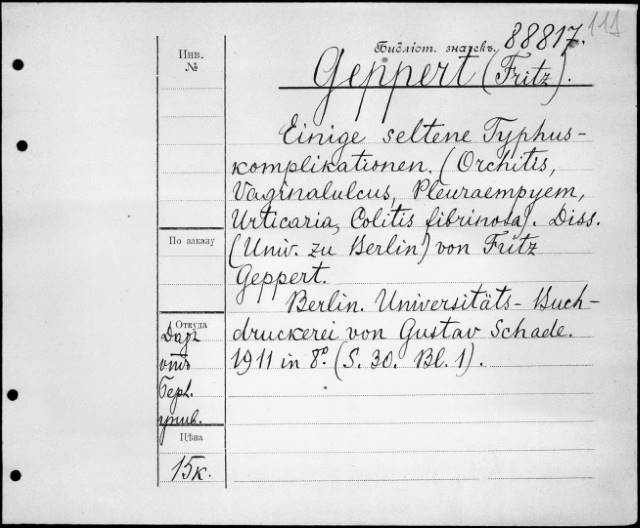 111
Библіот. значекъ. 88817.
Инв.
№
Geppert (Fritz).
Einige seltene Typhus-
komplikationen. (Orchitis,
Vaginalulcus, Pleuraempyem,
Urticaria, Colitis fibrinosa). Diss.
(Univ. zu Berlin) von Fritz
Geppert.
Berlin. Universitäts-Buch-
druckerei von Gustav Schade.
1911 in 8°. (S. 30. Bl. 1).
По заказу
Откуда
Даръ
отъ
Берл.
унив.
Цѣна
15к.